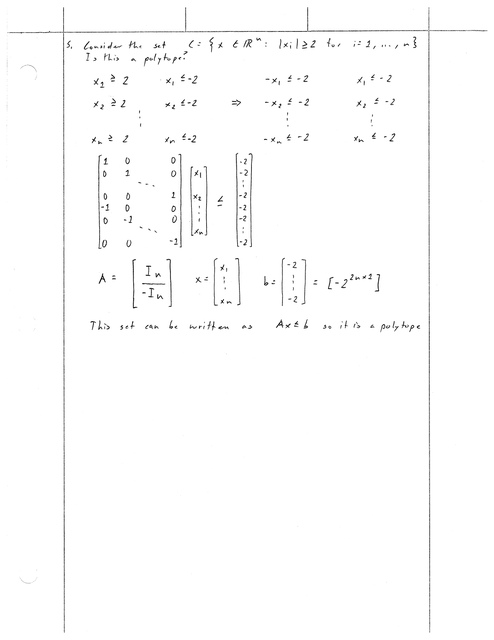 5. Consider the set C = { x ∈ ℝⁿ : |xᵢ| ≥ 2 for i = 1, ..., n}
Is this a polytope?
x₁ ≥ 2 x₁ ≤ -2 -x₁ ≤ -2 x₁ ≤ -2
x₂ ≥ 2 x₂ ≤ -2 ⇒ -x₂ ≤ -2 x₂ ≤ -2
⋮ ⋮ ⋮
xₙ ≥ 2 xₙ ≤ -2 -xₙ ≤ -2 xₙ ≤ -2
[1 0 0
0 1 0
...
0 0 1
-1 0 0
0 -1 0
...
0 0 -1] [x₁ x₂ ⋮ xₙ] ≤ [-2 -2 ⋮ -2 -2 -2 ⋮ -2]
A = [Iₙ / -Iₙ] x = [x₁ ⋮ xₙ] b = [-2 ⋮ -2] = [-2²ⁿˣ¹]
This set can be written as Ax ≤ b so it is a polytope